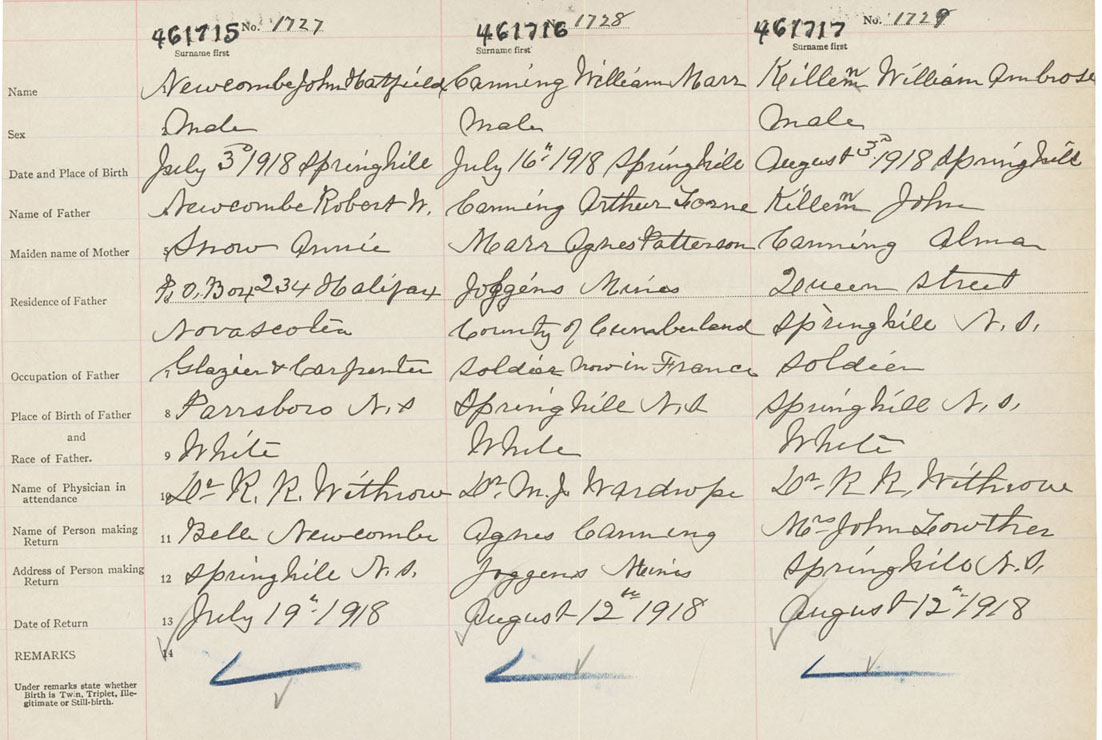 461715 No. 1727 461716 No. 1728 461717 No. 1729
Surname first Surname first Surname first
Name Newcombe John Hatfield Canning William Marr Killem William Ambrose
Sex 2 Male Male Male
Date and Place of Birth July 3rd 1918 Springhill July 16th 1918 Springhill August 3rd 1918 Springhill
Name of Father Newcombe Robert W. Canning Arthur Lorne Killem John
Maiden name of Mother 5 Snow Annie Marr Agnes Patterson Canning Alma
Residence of Father P.O. Box 234 Halifax Joggens Mines Queen Street
Nova Scotia County of Cumberland Springhill N.S.
Occupation of Father 7 Glazier & Carpenter Soldier now in France Soldier
Place of Birth of Father 8 Parrsboro N.S Springhill N.S Springhill N.S.
and
Race of Father. 9 White White White
Name of Physician in
attendance 10 Dr R. R. Withrow Dr. M. J. Wardrope Dr. R R. Withrow
Name of Person making
Return 11 Belle Newcombe Agnes Canning Mrs John Lowther
Address of Person making
Return 12 Springhill N.S. Joggens Mines Springhill N.S.
Date of Return 13 July 19th 1918 August 12th 1918 August 12th 1918
REMARKS 14
Under remarks state whether
Birth is Twin, Triplet, Ille-
gitimate or Still-birth.